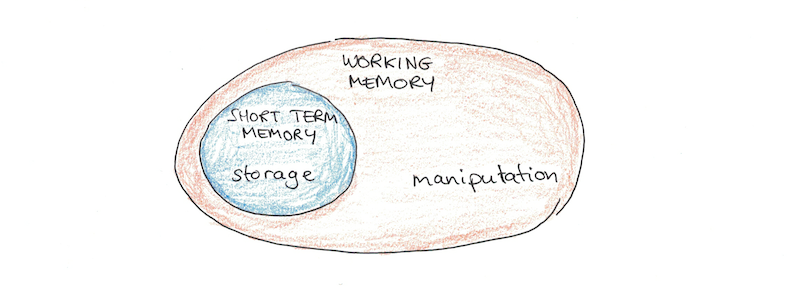 WORKING
MEMORY
SHORT TERM
MEMORY
storage
manipulation